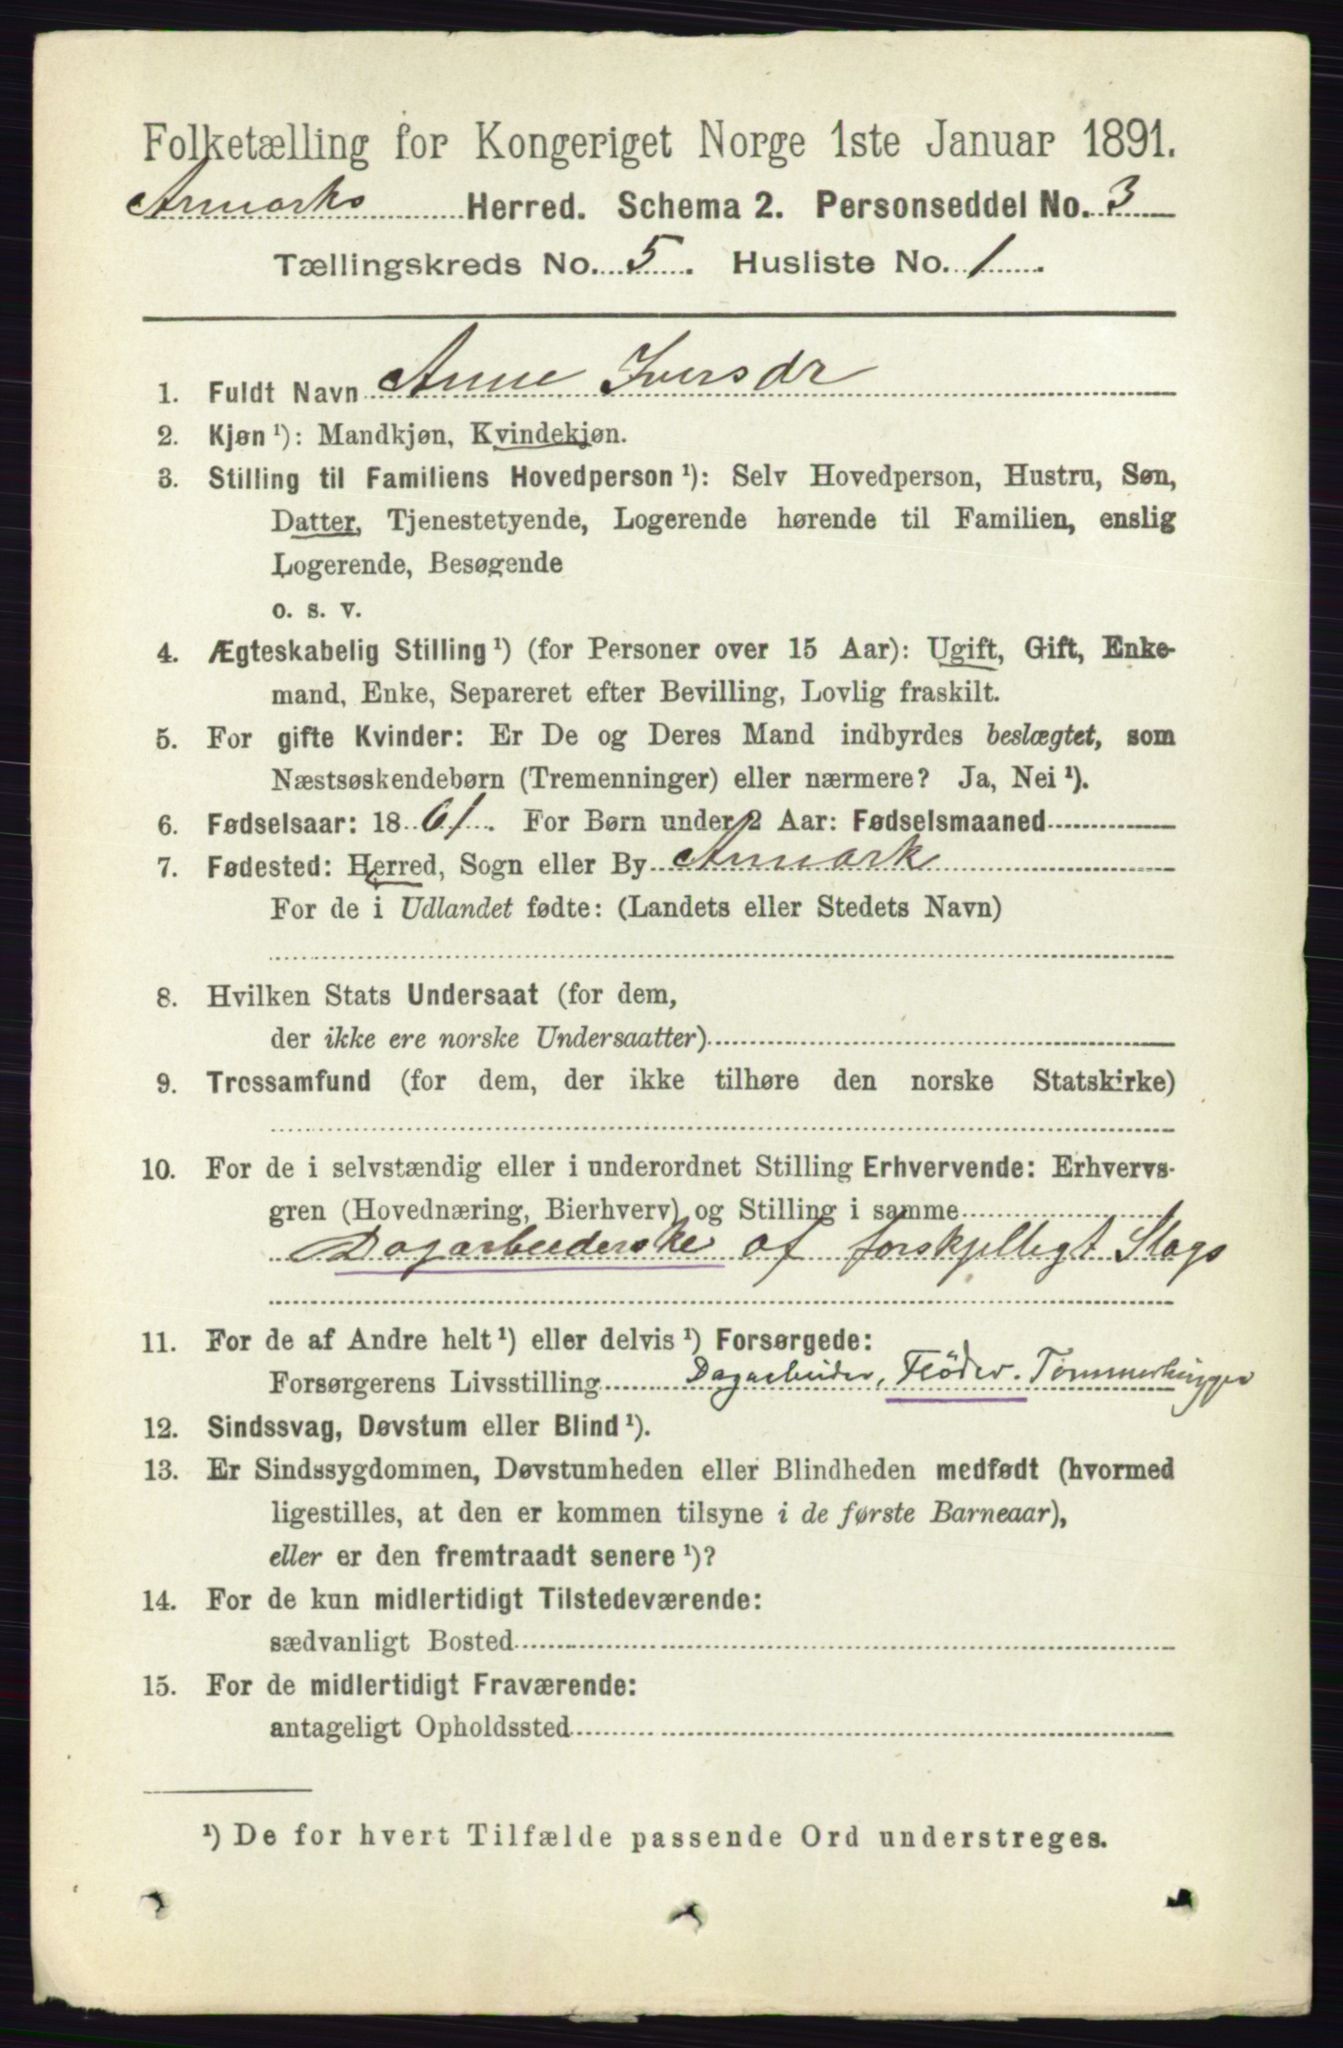 Folketælling for Kongeriget Norge 1ste Januar 1891.
Aremarks Herred. Schema 2. Personseddel No. 3
Tællingskreds No. 5. Husliste No. 1
1. Fuldt Navn Anne Iversdr
2. Kjøn ¹): Mandkjøn, Kvindekjøn.
3. Stilling til Familiens Hovedperson ¹): Selv Hovedperson, Hustru, Søn,
Datter, Tjenestetyende, Logerende hørende til Familien, enslig
Logerende, Besøgende
o. s. v.
4. Ægteskabelig Stilling ¹) (for Personer over 15 Aar): Ugift, Gift, Enke-
mand, Enke, Separeret efter Bevilling, Lovlig fraskilt.
5. For gifte Kvinder: Er De og Deres Mand indbyrdes beslægtet, som
Næstsøskendebørn (Tremenninger) eller nærmere? Ja, Nei ¹).
6. Fødselsaar: 1861. For Børn under 2 Aar: Fødselsmaaned
7. Fødested: Herred, Sogn eller By Aremark
For de i Udlandet fødte: (Landets eller Stedets Navn)
8. Hvilken Stats Undersaat (for dem,
der ikke ere norske Undersaatter)
9. Trossamfund (for dem, der ikke tilhøre den norske Statskirke)
10. For de i selvstændig eller i underordnet Stilling Erhvervende: Erhvervs-
gren (Hovednæring, Bierhverv) og Stilling i samme
Dagarbeiderske af forskjelligt Slags
11. For de af Andre helt ¹) eller delvis ¹) Forsørgede:
Forsørgerens Livsstilling Dagarbeider, Fløder. Tømmerhugger
12. Sindssvag, Døvstum eller Blind ¹).
13. Er Sindssygdommen, Døvstumheden eller Blindheden medfødt (hvormed
ligestilles, at den er kommen tilsyne i de første Barneaar),
eller er den fremtraadt senere ¹)?
14. For de kun midlertidigt Tilstedeværende:
sædvanligt Bosted
15. For de midlertidigt Fraværende:
antageligt Opholdssted
¹) De for hvert Tilfælde passende Ord understreges.